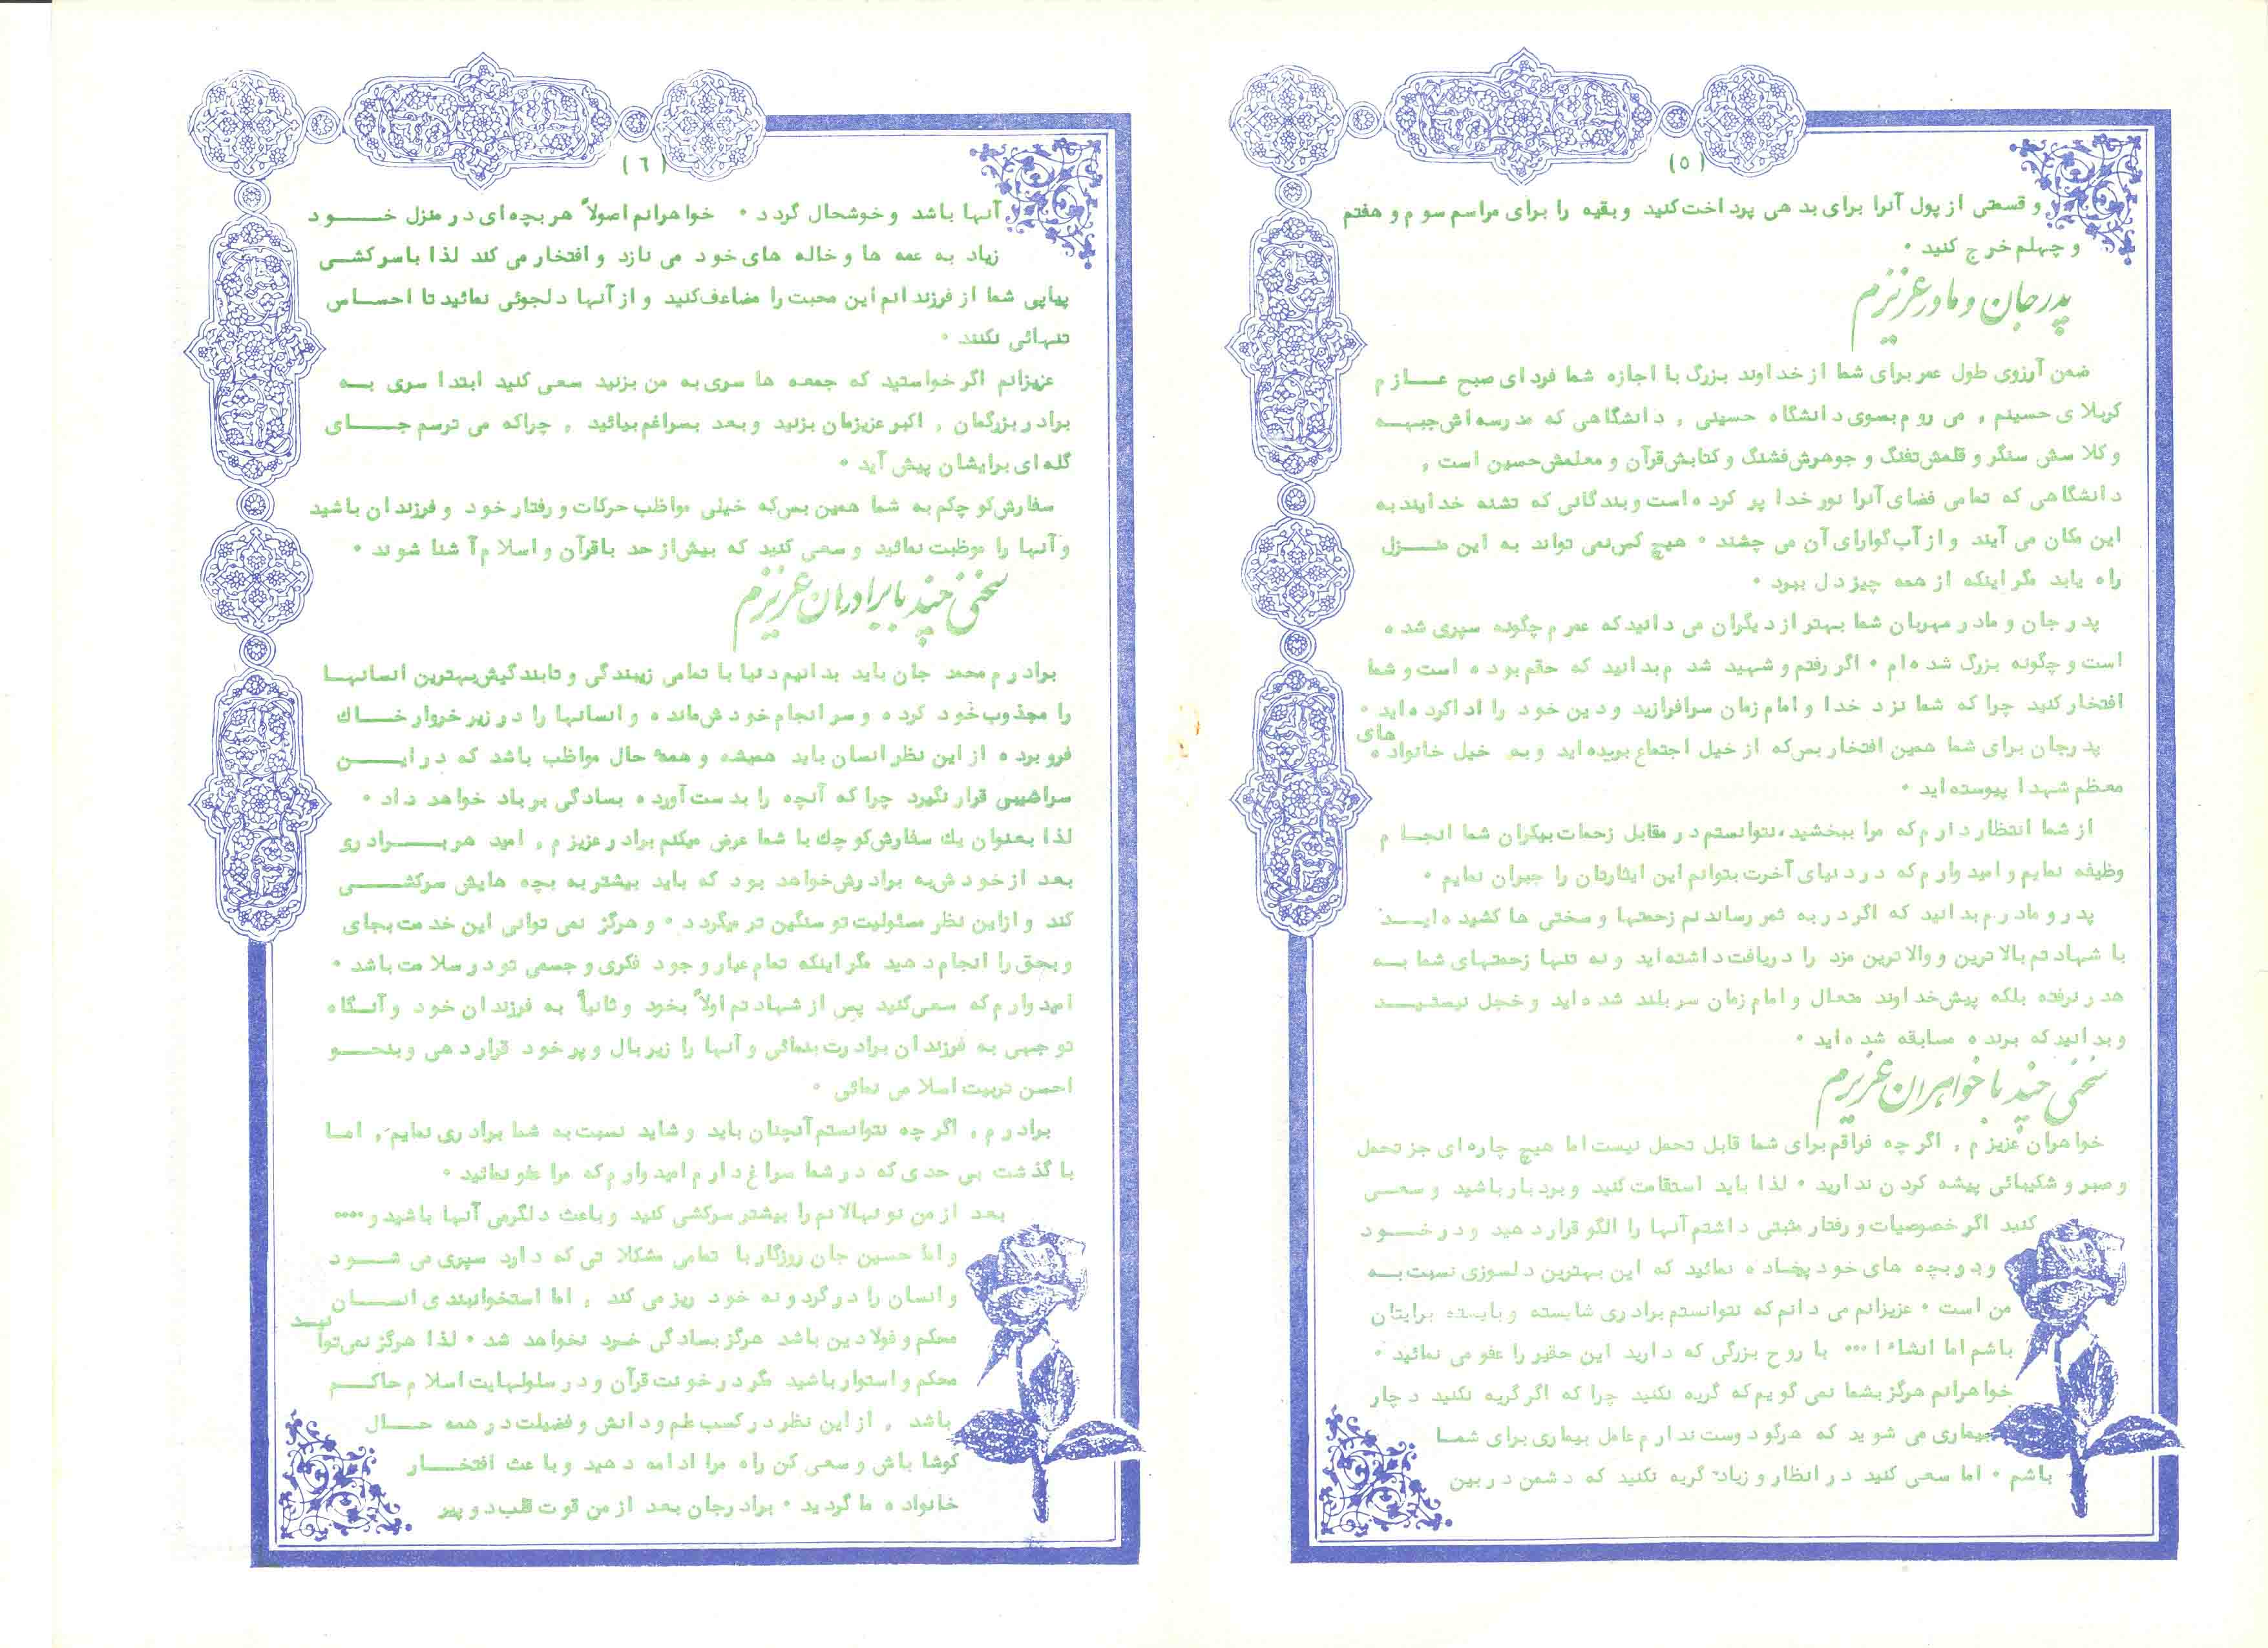 (٥)
و قسمتی از پول آنرا برای بدهی پرداخت کنید و بقیه را برای مراسم سوم و هفتم
و چهلم خرج کنید .
پدر جان و مادر عزیزم
ضمن آرزوی طول عمر برای شما از خداوند بزرگ با اجازه شما فردای صبح عازم
کربلای حسینم , می روم بسوی دانشگاه حسینی , دانشگاهی که مدرسه اش جبهه
و کلاسش سنگر و قلمش تفنگ و جوهرش فشنگ و کتابش قرآن و معلمش حسین است ,
دانشگاهی که تمامی فضای آنرا نور خدا پر کرده است و بندگانی که تشنه خدایند به
این مکان می آیند و از آب گوارای آن می چشند . هیچ کس نمی تواند به این منزل
راه یابد مگر اینکه از همه چیز دل ببرد .
پدر جان و مادر مهربان شما بهتر از دیگران می دانید که عمرم چگونه سپری شده
است و چگونه بزرگ شده ام . اگر رفتم و شهید شدم بدانید که حقم بوده است و شما
افتخار کنید چرا که شما نزد خدا و امام زمان سرافرازید و دین خود را ادا کرده اید .
پدرجان برای شما همین افتخار بس که از خیل اجتماع بریده اید و به خیل خانواده های
معظم شهدا پیوسته اید .
از شما انتظار دارم که مرا ببخشید ، نتوانستم در مقابل زحمات بیکران شما انجام
وظیفه نمایم و امیدوارم که در دنیای آخرت بتوانم این ایثارتان را جبران نمایم .
پدر و مادرم بدانید که اگر در به ثمر رساندنم زحمتها و سختی ها کشیده ایـــد
با شهادتم بالاترین و والاترین مزد را دریافت داشته اید و نه تنها زحمتهای شما به
هدر نرفته بلکه پیش خداوند متعال و امام زمان سربلند شده اید و خجل نیستیـــد
و بدانید که برنده مسابقه شده اید .
سخنی چند با خواهران عزیزم
خواهران عزیزم , اگر چه فراقم برای شما قابل تحمل نیست اما هیچ چاره ای جز تحمل
و صبر و شکیبائی پیشه کردن ندارید . لذا باید استقامت کنید و بردبار باشید و سعـــی
کنید اگر خصوصیات و رفتار مثبتی داشتم آنها را الگو قرار دهید و در خـــود
و بچه های خود پیاده نمائید که این بهترین دلسوزی نسبت بـه
من است . عزیزانم می دانم که نتوانستم برادری شایسته و بایسته برایتان
باشم اما انشاء ا ... با روح بزرگی که دارید این حقیر را عفو می نمائید .
خواهرانم هرگز بشما نمی گویم که گریه نکنید چرا که اگر گریه نکنید دچار
بیماری می شوید که هرگز دوست ندارم عامل بیماری برای شمـا
باشم . اما سعی کنید در انظار و زیاد گریه نکنید که دشمن در بین
(٦)
آنها باشد و خوشحال گردد . خواهرانم اصولاً هر بچه ای در منزل خـــود
زیاد به عمه ها و خاله های خود می نازد و افتخار می کند لذا با سرکشـی
پیاپی شما از فرزندانم این محبت را مضاعف کنید و از آنها دلجوئی نمائید تا احساس
تنهائی نکنند .
عزیزانم اگر خواستید که جمعه ها سری به من بزنید سعی کنید ابتدا سری بـه
برادر بزرگمان , اکبر عزیزمان بزنید و بعد بسراغم بیائید , چراکه می ترسم جـــای
گله ای برایشان پیش آید .
سفارش کوچکم به شما همین بس که خیلی مواظب حرکات و رفتار خود و فرزندان باشید
و آنها را موظبت نمائید و سعی کنید که بیش از حد با قرآن و اسلام آشنا شوند .
سخنی چند با برادران عزیزم
برادرم محمد جان باید بدانیم دنیا با تمامی زیبندگی و تابندگیش بهترین انسانهـا
را مجذوب خود کرده و سر انجام خودش مانده و انسانها را در زیر خروار خـــاک
فرو برده از این نظر انسان باید همیشه و همه حال مواظب باشد که در ایـــن
سراشیبی قرار نگیرد چرا که آنچه را بدست آورده بسادگی بر باد خواهد داد .
لذا بعنوان یک سفارش کوچک با شما عرض میکنم برادر عزیزم , امید هر بـــرادری
بعد از خودش به برادرش خواهد بود که باید بیشتر به بچه هایش سرکشـــی
کند و ازاین نظر مسئولیت تو سنگین تر میگردد . و هرگز نمی توانی این خدمت بجای
و بحق را انجام دهید مگر اینکه تمام عیار وجود فکری و جسمی تو در سلامت باشد .
امیدوارم که سعی کنید پس از شهادتم اولاً بخود و ثانیاً به فرزندان خود و آنـگاه
توجهی به فرزندان برادرت بنمائی و آنها را زیر بال و پر خود قرار دهی و بنحـــو
احسن تربیت اسلامی نمائی .
برادرم , اگر چه نتوانستم آنچنان باید و شاید نسبت به شما برادری نمایم , امـا
با گذشت بی حدی که در شما سراغ دارم امیدوارم که مرا عفو نمائید .
بعد از من نونهالانم را بیشتر سرکشی کنید و باعث دلگرمی آنها باشید و ....
و اما حسین جان روزگار با تمامی مشکلاتی که دارد سپری می شـــود
و انسان را در گردونه خود ریز می کند , اما استخوانبندی انســـان
محکم و فولادین باشد هرگز بسادگی خرد نخواهد شد . لذا هرگز نمی توانیـد
محکم و استوار باشید مگر در خونت قرآن و در سلولهایت اسلام حاکـــم
باشد , از این نظر در کسب علم و دانش و فضیلت در همه حـــال
کوشا باش و سعی کن راه مرا ادامه دهید و باعث افتخـــار
خانواده ما گردید . برادرجان بعد از من قوت قلب دو پیر